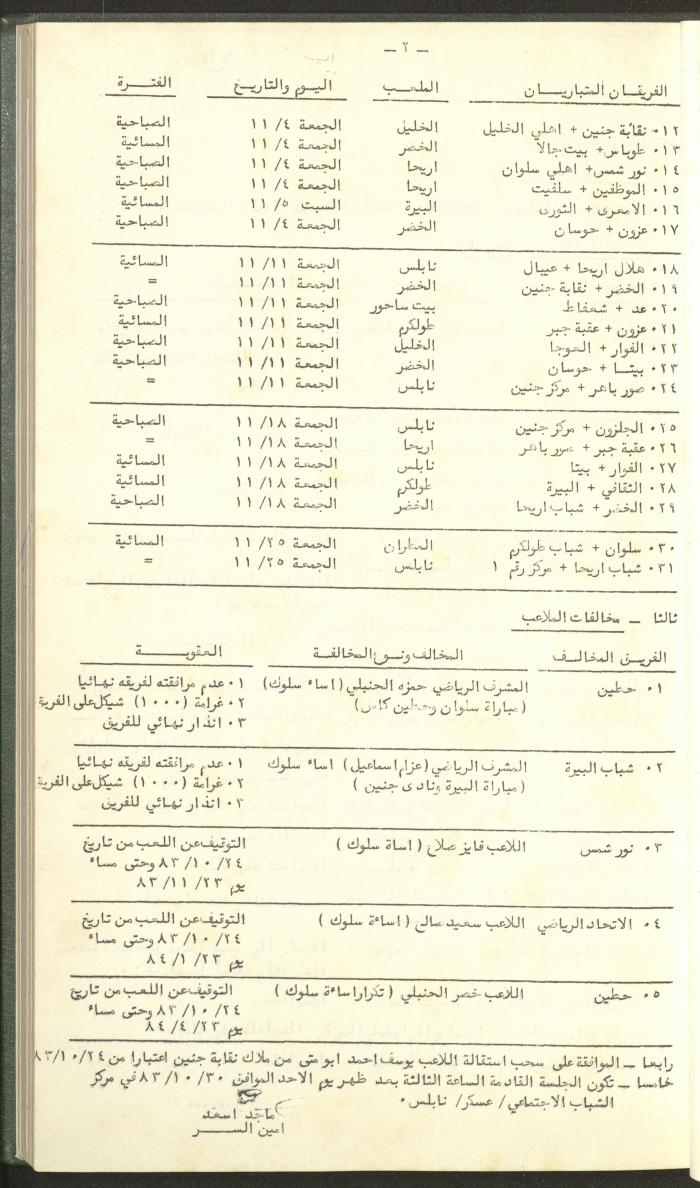 — ٢ —
الفريقان المتباريان الملعب اليوم والتاريخ الفترة
١٢٠ نقابة جنين + اهلي الخليل الخليل الجمعة ١١/٤ الصباحية
١٣٠ طوباس+ بيت جالا الخضر الجمعة ١١/٤ المسائية
١٤٠ نور شمس+ اهلي سلوان اريحا الجمعة ١١/٤ الصباحية
١٥٠ الموظفين + سلفيت اريحا الجمعة ١١/٤ الصباحية
١٦٠ الامعرى + الثورى البيرة السبت ١١/٥ المسائية
١٧٠ عزون + حوسان الخضر الجمعة ١١/٤ الصباحية
١٨٠ هلال اريحا + عيبال نابلس الجمعة ١١/١١ المسائية
١٩٠ الخضر + نقابة جنين الخضر الجمعة ١١/١١ =
٢٠٠ عد + شعفاط بيت ساحور الجمعة ١١/١١ الصباحية
٢١٠ عزون + عقبة جبر طولكرم الجمعة ١١/١١ المسائية
٢٢٠ الفوار + العوجا الخليل الجمعة ١١/١١ الصباحية
٢٣٠ بيتا + حوسان الخضر الجمعة ١١/١١ الصباحية
٢٤٠ صور باهر + مركز جنين نابلس الجمعة ١١/١١ =
٢٥٠ الجلزون + مركز جنين نابلس الجمعة ١١/١٨ الصباحية
٢٦٠ عقبة جبر + صور باهر اريحا الجمعة ١١/١٨ =
٢٧٠ الفوار + بيتا نابلس الجمعة ١١/١٨ المسائية
٢٨٠ الثقافي + البيرة طولكرم الجمعة ١١/١٨ المسائية
٢٩٠ الخضر + شباب اريحا الخضر الجمعة ١١/١٨ الصباحية
٣٠٠ سلوان + شباب طولكرم المطران الجمعة ١١/٢٥ المسائية
٣١٠ شباب اريحا + مركز رقم ١ نابلس الجمعة ١١/٢٥ =
ثالثا — مخالفات الملاعب
الفريق المخالف المخالف ونوع المخالفة العقوبة
١٠ حطين المشرف الرياضي حمزه الحنبلي (اساء سلوك) ١٠ عدم مرافقته لفريقه نهائيا
(مباراة سلوان وحطين كاس) ٢٠ غرامة (١٠٠٠) شيكل على الفريق
٣٠ انذار نهائي للفريق
٢٠ شباب البيرة المشرف الرياضي (عزام اسماعيل) اساء سلوك ١٠ عدم مرافقته لفريقه نهائيا
(مباراة البيرة ونادى جنين) ٢٠ غرامة (١٠٠٠) شيكل على الفريق
٣٠ انذار نهائي للفريق
٣٠ نور شمس اللاعب فايز صلاح (اساة سلوك) التوقيف عن اللعب من تاريخ
٨٣/١٠/٢٤ وحتى مساء
يوم ٨٣/١١/٢٣
٤٠ الاتحاد الرياضي اللاعب سعيد صالح (اساءة سلوك) التوقيف عن اللعب من تاريخ
٨٣/١٠/٢٤ وحتى مساء
يوم ٨٤/١/٢٣
٥٠ حطين اللاعب خضر الحنبلي (تكرار اساءة سلوك) التوقيف عن اللعب من تاريخ
٨٣/١٠/٢٤ وحتى مساء
يوم ٨٤/٤/٢٣
رابعا — الموافقة على سحب استقالة اللاعب يوسف احمد ابو متى من ملاك نقابة جنين اعتبارا من ٨٣/١٠/٢٤
خامسا — تكون الجلسة القادمة الساعة الثالثة بعد ظهر يوم الاحد الموافق ٨٣/١٠/٣٠ في مركز
الشباب الاجتماعي/ عسكر/ نابلس٠
ماجد اسعد
امين السر